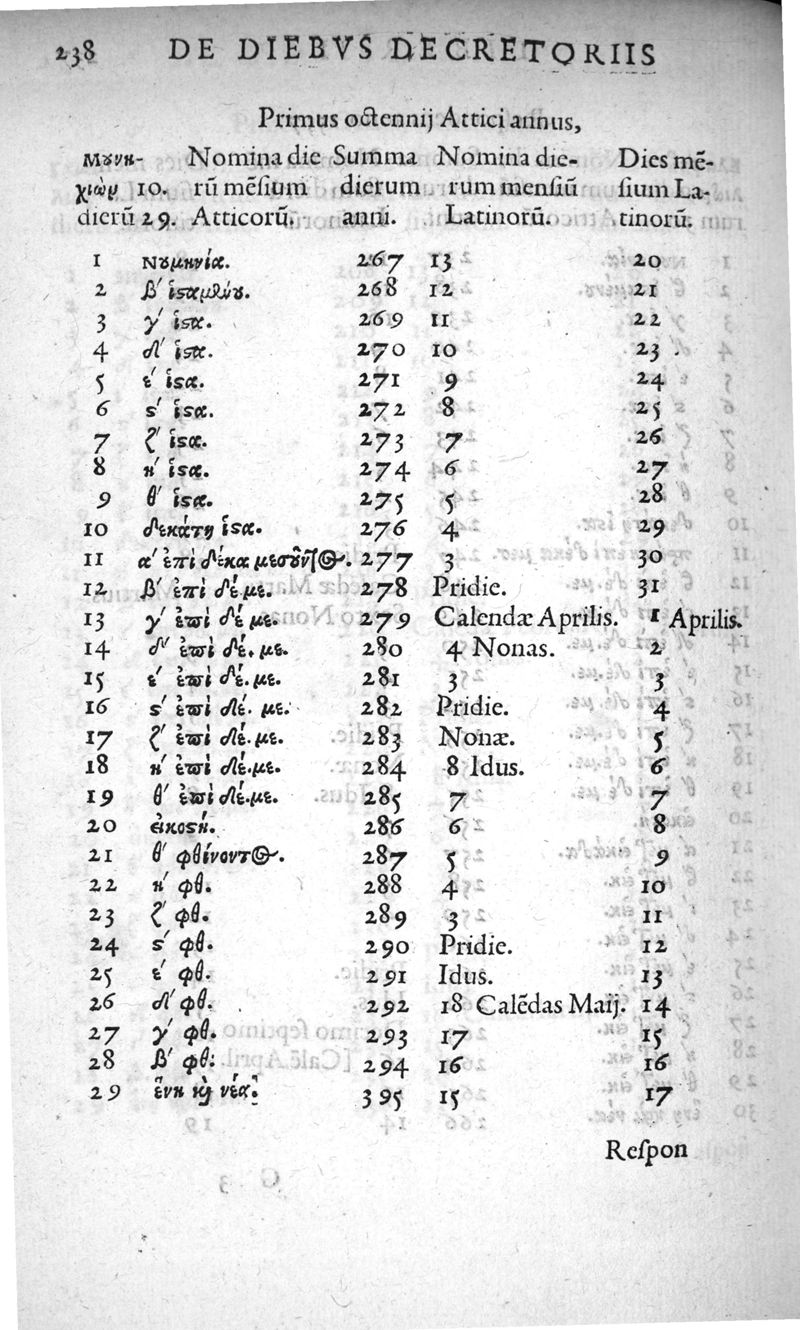 238 DE DIEBVS DECRETORIIS
Primus octennij Attici annus,
Μουνη- Nomina die Summa Nomina die- Dies mẽ-
χιὼν 10. rũ mẽsium dierum rum mensiũ sium La-
dierũ 29. Atticorũ. anni. Latinorũ. tinorũ.
1 νουμηνία. 267 13 20
2 β′ ἱσαμλύου. 268 12 21
3 γ′ ἱσα. 269 11 22
4 δ′ ἱσα. 270 10 23
5 ε′ ἱσα. 271 9 24
6 ϛ′ ἱσα. 272 8 25
7 ζ′ ἱσα. 273 7 26
8 η′ ἱσα. 274 6 27
9 θ′ ἱσα. 275 5 28
10 δεκάτη ἱσα. 276 4 29
11 α′ ἐπὶ δέκα μεσοῦντος. 277 3 30
12 β′ ἐπὶ δέ. με. 278 Pridie. 31
13 γ′ ἐπὶ δέ. με. 279 Calendæ Aprilis. 1 Aprilis.
14 δ′ ἐπὶ δέ. με. 280 4 Nonas. 2
15 ε′ ἐπὶ δέ. με. 281 3 3
16 ϛ′ ἐπὶ δέ. με. 282 Pridie. 4
17 ζ′ ἐπὶ δέ. με. 283 Nonæ. 5
18 η′ ἐπὶ δέ. με. 284 8 Idus. 6
19 θ′ ἐπὶ δέ. με. 285 7 7
20 εἰκοστή. 286 6 8
21 θ′ φθίνοντος. 287 5 9
22 η′ φθ. 288 4 10
23 ζ′ φθ. 289 3 11
24 ϛ′ φθ. 290 Pridie. 12
25 ε′ φθ. 291 Idus. 13
26 δ′ φθ. 292 18 Calẽdas Maij. 14
27 γ′ φθ. 293 17 15
28 β′ φθ. 294 16 16
29 ἕνη καὶ νέα. 395 15 17
Respon